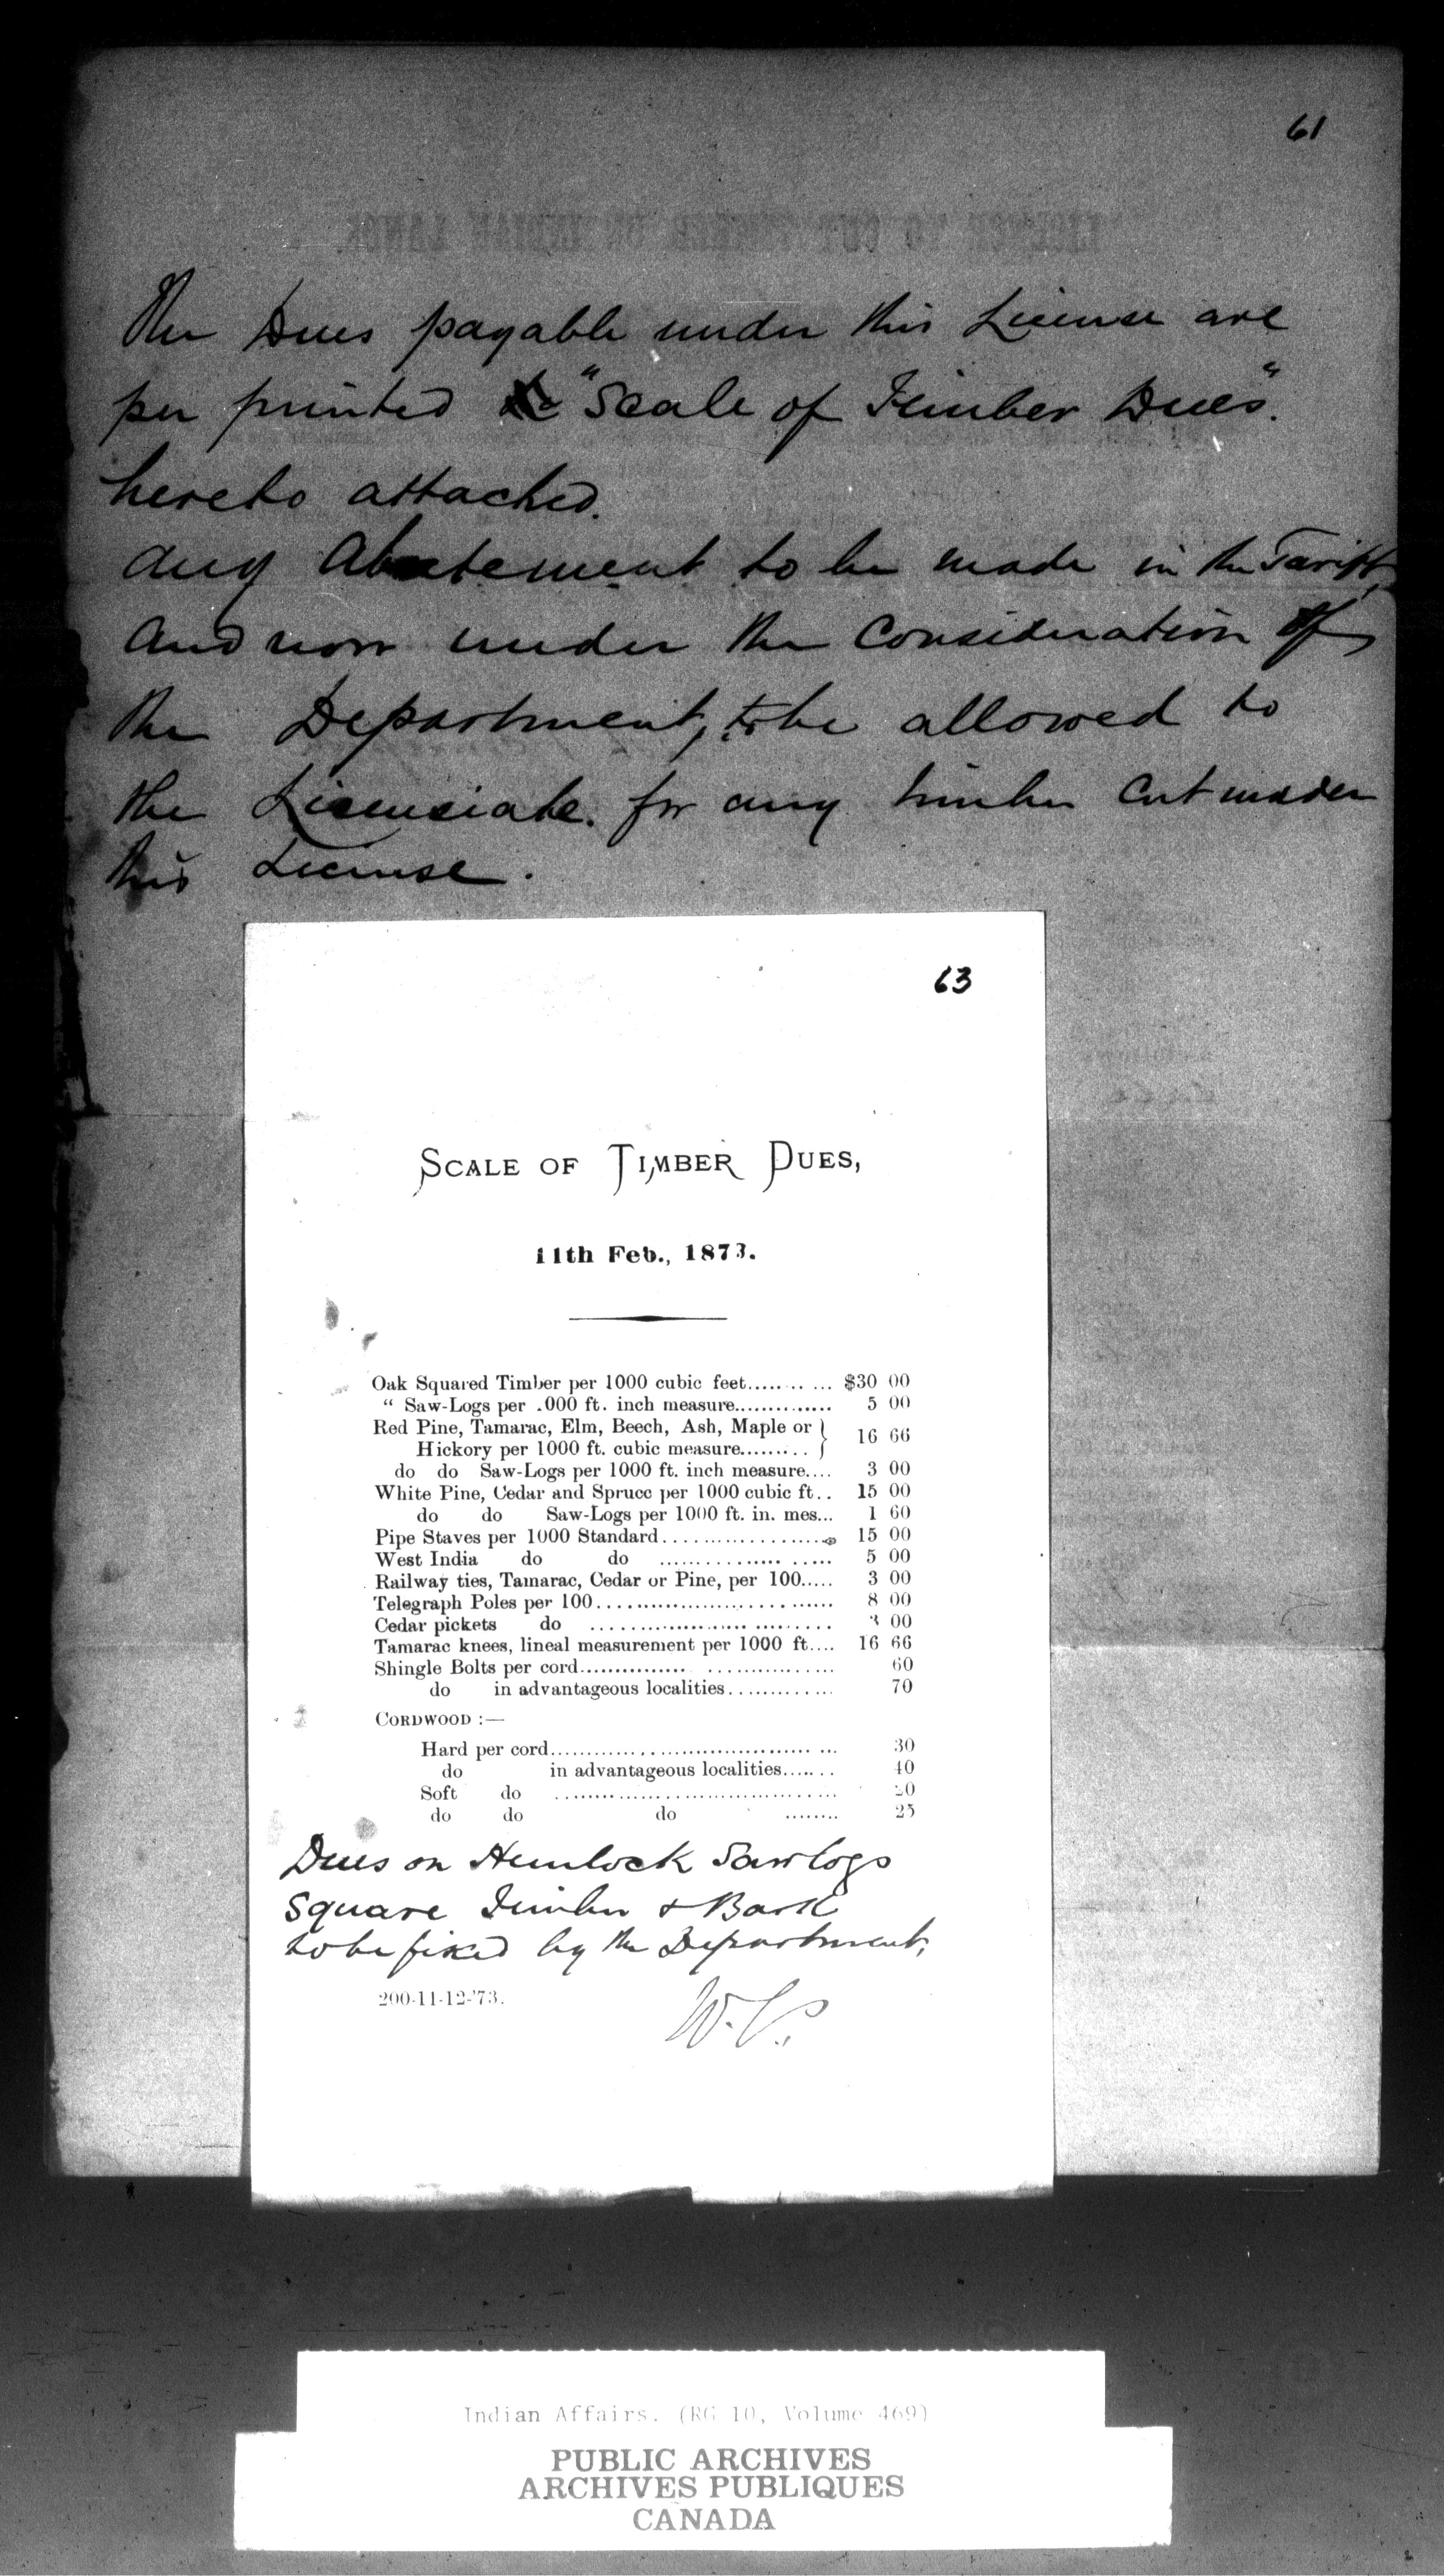 61
LICENSE TO CUT TIMBER ON INDIAN LANDS.
The Dues payable under this License are
per printed "Scale of Timber Dues".
hereto attached.
Any Abatement to be made in the Tariff,
and now under the Consideration of
the Department, to be allowed to
the Licensiate. for any timber Cut under
this License.
63
SCALE OF TIMBER DUES,
11th Feb., 1873.
Oak Squared Timber per 1000 cubic feet........... $30 00
“ Saw-Logs per .000 ft. inch measure.............. 5 00
Red Pine, Tamarac, Elm, Beech, Ash, Maple or }
Hickory per 1000 ft. cubic measure......... } 16 66
do do Saw-Logs per 1000 ft. inch measure.... 3 00
White Pine, Cedar and Spruce per 1000 cubic ft.. 15 00
do do Saw-Logs per 1000 ft. in. mes... 1 60
Pipe Staves per 1000 Standard................... 15 00
West India do do ..................... 5 00
Railway ties, Tamarac, Cedar or Pine, per 100..... 3 00
Telegraph Poles per 100............................ 8 00
Cedar pickets do ............................ 3 00
Tamarac knees, lineal measurement per 1000 ft.... 16 66
Shingle Bolts per cord............................ 60
do in advantageous localities............. 70
CORDWOOD :—
Hard per cord...................................... 30
do in advantageous localities....... 40
Soft do .................................. 20
do do do ........ 25
Dues on Hemlock Sawlogs
Square Timber & Bark
to be fixed by the Department,
200-11-12-'73.
Indian Affairs. (RG 10, Volume 469)
PUBLIC ARCHIVES
ARCHIVES PUBLIQUES
CANADA